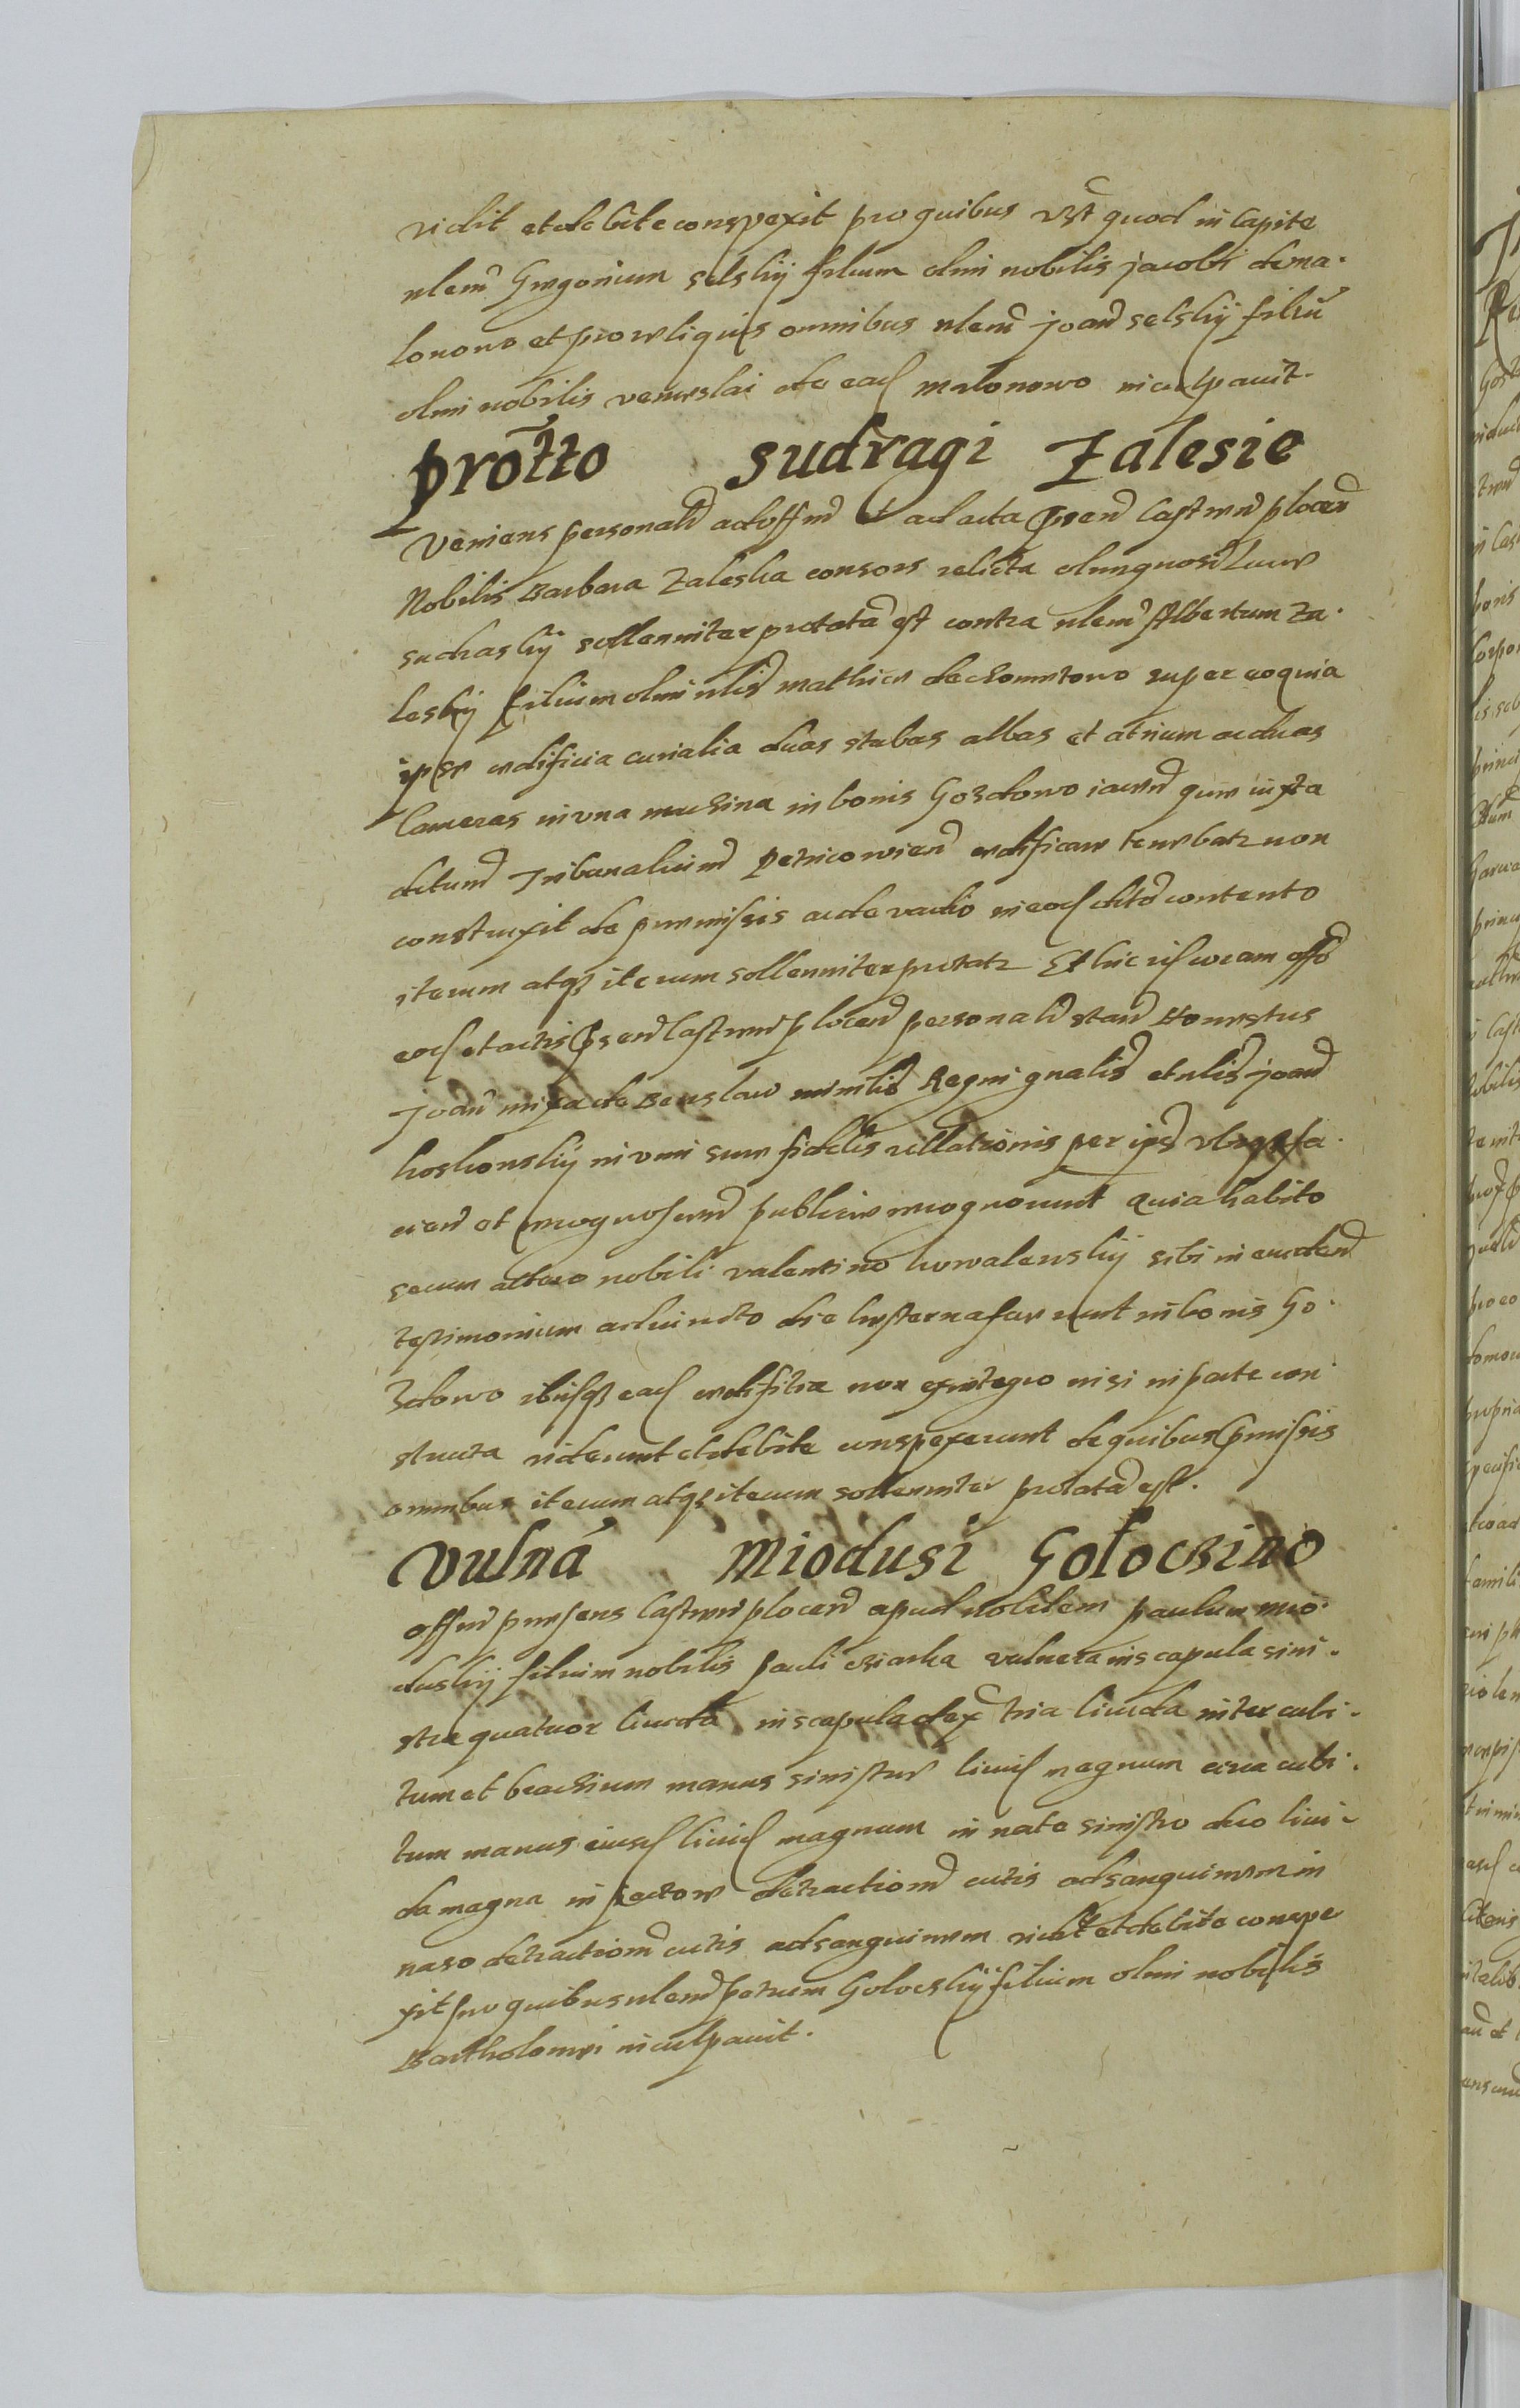 vidit et debite conspexit pro quibus vst quod in capite
nlem Gregorium selskij filium olim nobilis jacobi de ma-
lonowo et pro reliquis omnibus nlem joan selskij filiu
olim nobilis venceslai de ead malonowo inculpavit.
protto sudragi Zalesie
Veniens personalr ad offm et ad acta psen Castren plocen
Nobilis Barbara Zaleska consors relicta olim gnosi
sudraskij sollenniter protata est contra nlem Albertum Za-
leskij filium olim nlis mathiæ de super eo quia
ipse ædificia curialia duas stubas albas et atrium ac duas
Cameras in una machina in bonis Gozdowo iacen quæ iuxta
dctum Tribunalium petricovien ædificare tenebatr non
construxit de præmissis ac de vadio in eod dcto contento
iterum atqz iterum sollenniter protatr Et hic coram offo
eod et actis psen Castren plocen personalr stan Honestus
Joan de minilis Regni gnalis et nlis joan
koskonskij in vim suæ fidelis rellationis per ips
cien et recognoscen publice recognovunt quia habito
secum altero nobili valentino kowalewskij sibi in eundem
testimonium adiuncto die hesterna fuerunt in bonis Go-
zdowo ibidqz ead ædifitia non ex integro nisi in parte con-
structa viderunt et debite conspexerunt de quibus pmissis
omnibus iterum atqz iterum sollenniter protata est.
Vulna Miodusi Golocsino
offm præsens Castren plocen apud nobilem paulum mio-
duskij filium nobilis pauli vulnera in scapula sini-
stra quatuor livida in scapula dex tria livida inter cubi-
tum et brachium manus sinistræ livid magnum circa cubi-
tum manus eiusd livid magnum in nate sinistro duo livi-
da magna in pectore detractionem cutis ad sanguinem in
naso detractionem cutis ad sanguinem vidit et debite conspe-
xit pro quibus nlem petrum Golocskij filium olim nobilis
Bartholomei inculpavit.